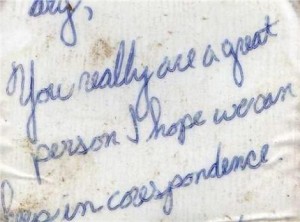 ary,
You really are a great
person I hope we can
keep in corespondence.